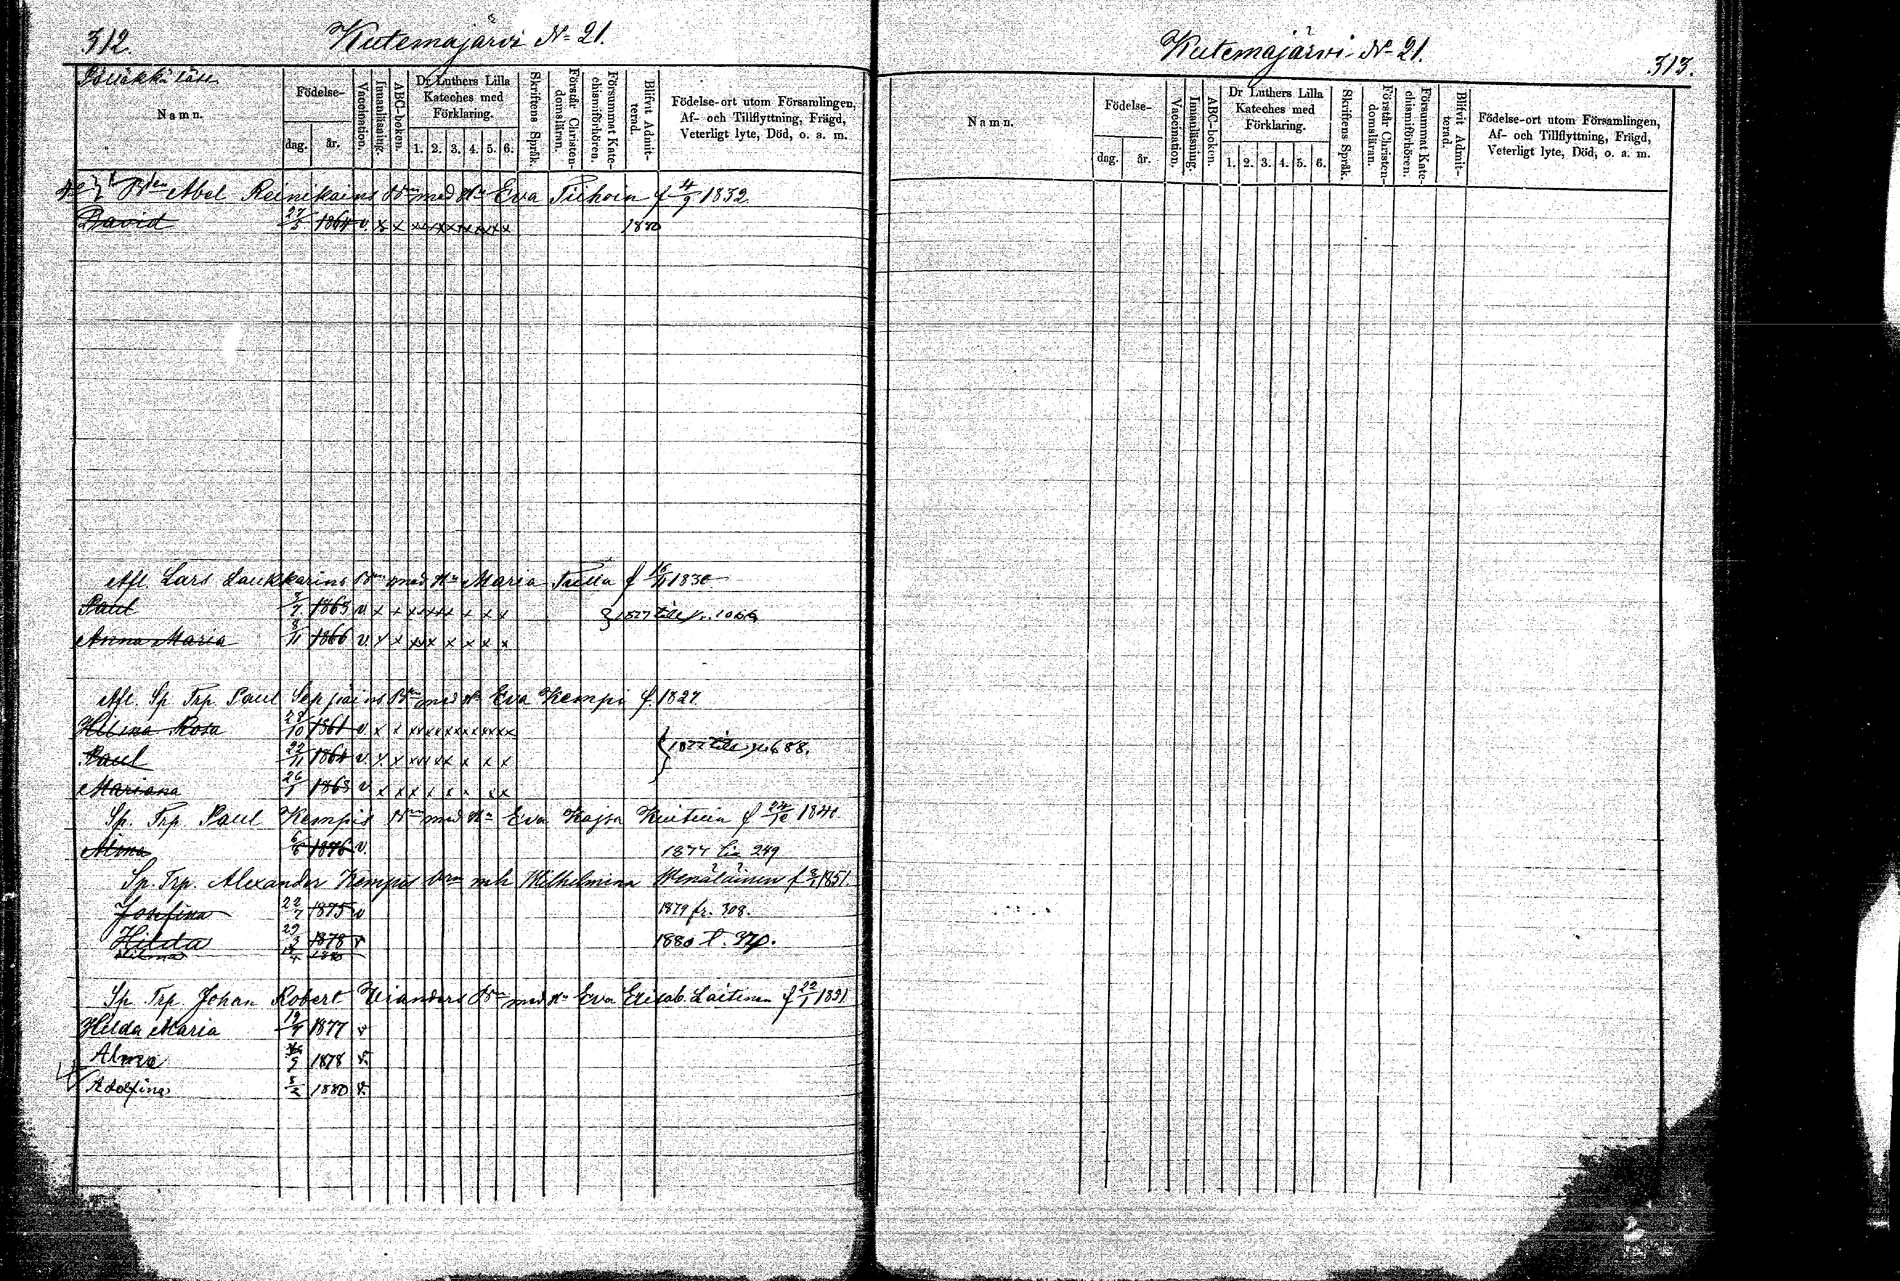 312.
Kutemajärvi No 21.
Namn.
Födelse-
dag.
år.
Vaccination.
Innanläsning.
ABC-boken.
Dr Luthers Lilla
Kateches med
Förklaring.
1. 2. 3. 4. 5. 6.
Skriftens Språk.
Förstår Christen-
domsläran.
Försummat Kate-
chismiförhören.
Blifvit Admit-
terad.
Födelse-ort utom Församlingen,
Af- och Tillflyttning, Frägd,
Veterligt lyte, Död, o. a. m.
Abel Reinikains Brn med Hu Eva Tiihoin f 4/9 1832
David 27/5 1864 v. x x xxxxxxxxx 1880
Afl. Lars Laukkarins Brn med Hu Maria f 1830
Paul 3/7 1863 v x x xxxxx x x x } 1877 till
Anna Maria 8/11 1866 v. x x xxx x x x x
Afl. Sp. Trp. Paul Seppäins Brn med Hu Eva Kempi f. 1827.
Rosa 28/10 1861 v. x x xxxxxxxxxx
Paul 22/11 1864 v. x x xxxxx x x x } 1877 till 688.
Mariana 1863 v. x x x x x x x x
Sp. Trp. Paul Kempis Brn med Hu Eva Kajsa f 24/10 1840.
6/6 1876 v. 1877 249
Sp. Trp. Alexander Kempis brn mh Wilhelmina Wenäläinen f 1851.
Josefina 22/7 1875 v 1879 fr. 308.
Hilda 29/3 1878 v 1880 t. 370.
1880
Sp. Trp. Johan Robert Brn med Hu Eva Elisab. Laitinen f 22/1 1851
Hilda Maria 1877 v
Alma 1878 v.
Adolfina 5/2 1880 v.
Kutemajärvi No 21.
313.
Namn.
Födelse-
dag.
år.
Vaccination.
Innanläsning.
ABC-boken.
Dr Luthers Lilla
Kateches med
Förklaring.
1. 2. 3. 4. 5. 6.
Skriftens Språk.
Förstår Christen-
domsläran.
Försummat Kate-
chismiförhören.
Blifvit Admit-
terad.
Födelse-ort utom Församlingen,
Af- och Tillflyttning, Frägd,
Veterligt lyte, Död, o. a. m.